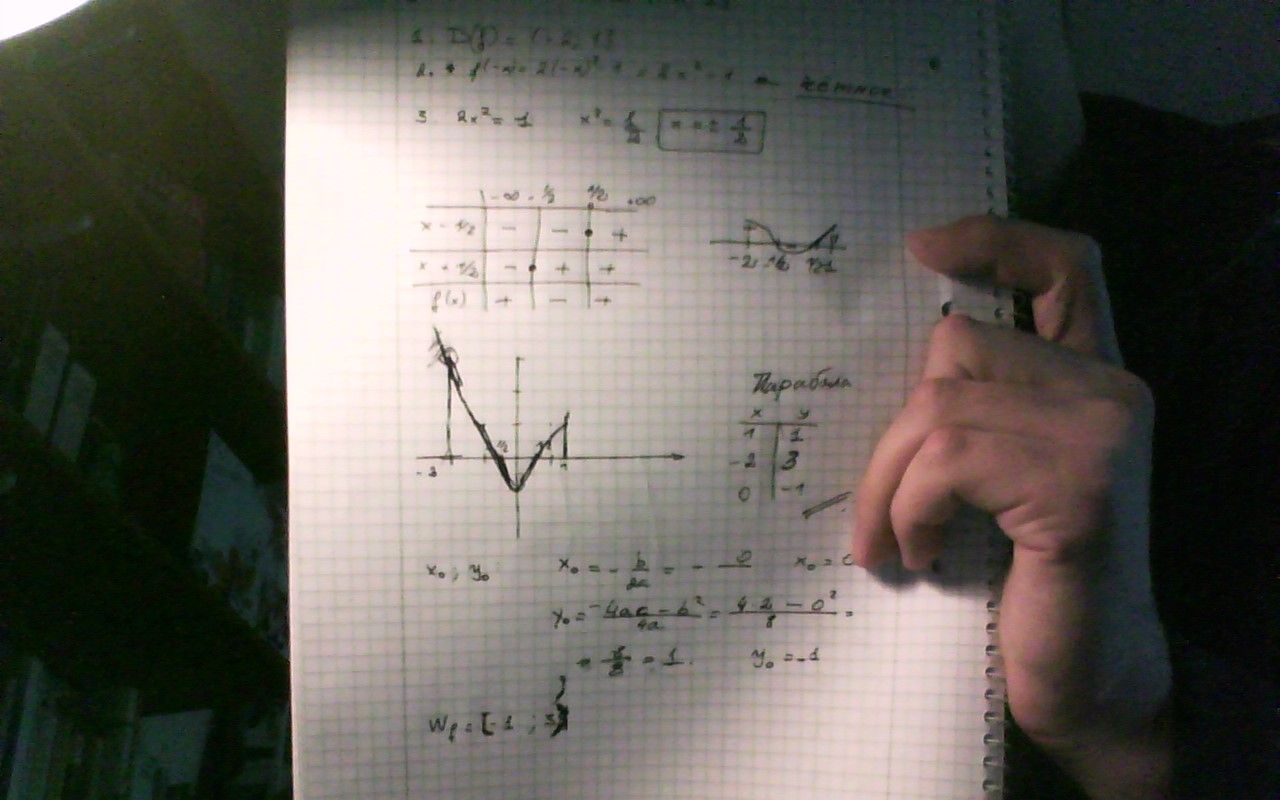 1. D(f) = (-2; 1]
2. f(-x) = 2(-x)² = 2x² - 1 -
3. 2x² = 1 x² = 1/2 x = ± 1/2
-∞ -1/2 1/2 +∞
x - 1/2 - - +
x + 1/2 - + +
f(x) + - +
-2 -1/2 1/2 1
-2 1/2
Парабола
x y
1 1
-2 3
0 -1
x₀; y₀ x₀ = - b/2a = - 0 x₀ = 0
y₀ = -4ac - b²/4a = 4·2 - 0²/8 =
= 8/8 = 1. y₀ = -1
W_f = [-1 ; 3)